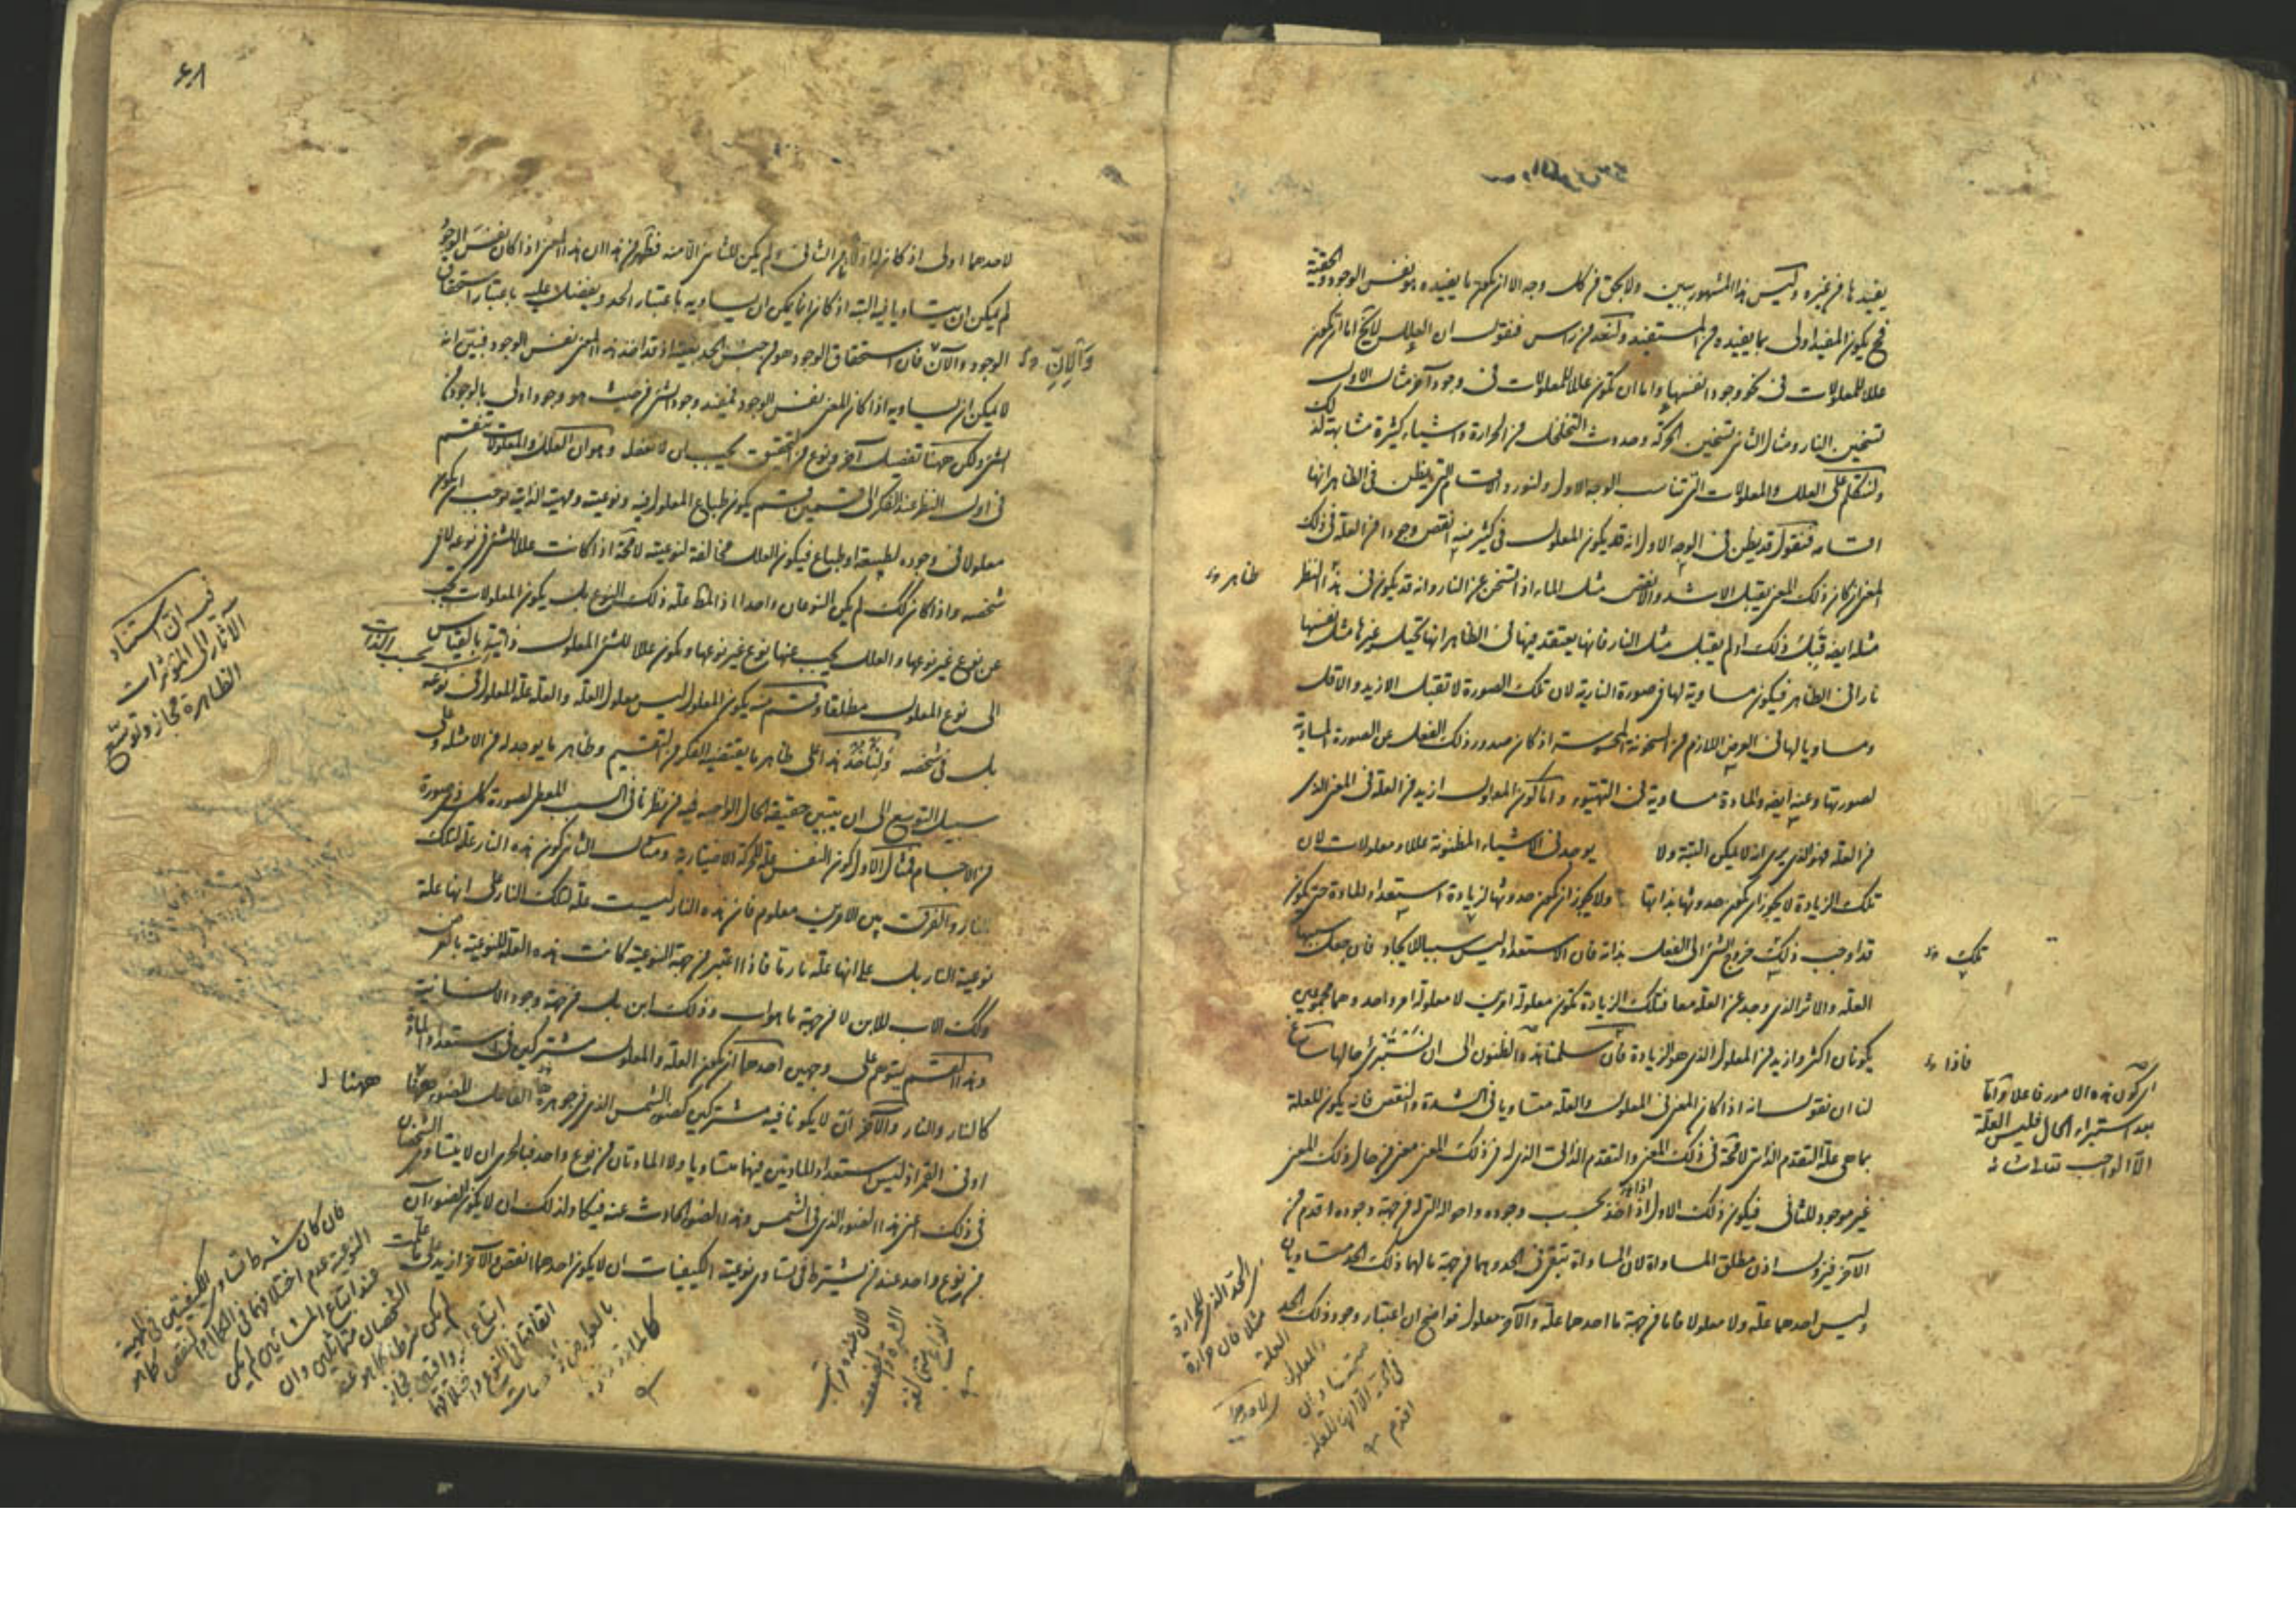 يفيدها فى غيره وليس هذا المشهور ببين ولا بحق من كل وجه الا ان يكون ما يفيده هو نفس الوجود والحقيقة
فح يكون المفيد اولى بما يفيده من المستفيد ولنعد من راس فنقول ان العلل لا يخ اما ان تكون
عللا للمعلولات فى نحو وجود انفسها واما ان تكون عللا للمعلولات فى وجود آخر مثال الاول
تسخين النار ومثال الثانى تسخين الحركة وحدوث التخلخل من الحرارة واشياء كثيرة مشابهة لذلك
ولنتكلم على العلل والمعلولات التى تناسب الوجه الاول ولنورد الاقسام التى يظن فى الظاهر انها
اقسامه فنقول قد يظن فى الوجه الاول انه قد يكون المعلول فى كثير منه انقص وجودا من العلة فى ذلك
المعنى ان كان ذلك المعنى يقبل الاشد والانقص مثل الماء اذا تسخن عن النار وانه قد يكون فى هذا النظر
ظاهر
مثله ايضا قبل ذلك او لم يقبل مثل النار فانها يعتقد فيها فى الظاهر انها تحيل غيرها مثل نفسها
نارا فى الظاهر فيكون مساوية لها فى صورة النارية لان تلك الصورة لا تقبل الازيد والاقل
ومساويا لها فى العرض اللازم من السخونة المحسوسة اذ كان صدور ذلك الفعل عن الصورة المساوية
لصورتها وعنه ايضا والمادة مساوية فى التهيؤ واما كون المعلول ازيد من العلة فى المعنى الذى
من العلة فهو الذى يرى انه لا يمكن البتة ولا يوجد فى الاشياء المظنونة عللا ومعلولات لان
تلك الزيادة لا يجوز ان يكون حدوثها بذاتها ولا يجوز ان يكون حدوثها لزيادة استعداد المادة حتى يكون
قد اوجب ذلك خروج الشئ الى الفعل بذاته فان الاستعداد ليس سببا للايجاد فان جعل سببها
تلك
العلة والاثر الذى وجد عن العلة معا فتلك الزيادة تكون معلولة امرين لا معلولة امر واحد وهما مجموعين
يكونان اكثر وازيد من المعلول الذى هو الزيادة فان سلمنا هذه الظنون الى ان نستبرئ حالها ساغ
فاذا
لنا ان نقول انه اذا كان المعنى فى المعلول والعلة متساويا فى الشدة والنقص فانه يكون للعلة
بما هى علة التقدم الذاتى لا محالة فى ذلك المعنى والتقدم الذاتى الذى له فى ذلك المعنى معنى من حال ذلك المعنى
غير موجود للثانى فيكون ذلك الاول اذا اخذ بحسب وجوده واحواله التى له من جهة وجوده اقدم من
الآخر فيزول اذن مطلق المساواة لان المساواة تبقى فى الحد وهما من جهة ما لهما ذلك الحد متساويان
وليس احدهما علة ولا معلولا فاما من جهة ما احدهما علة والآخر معلول فواضح ان اعتبار وجود ذلك الحد
اى كون هذه الامور فاعلا واما
بعد استبراء الحال فليس العلة
الا الواجب تعالى شانه
مثلا فان حرارة
العلة
والمعلول
متساويان
اقدم
۶۸
لاحدهما اولى اذ كان له اولا لا من الثانى ولم يكن للثانى الا منه فظهر من هذا ان هذا المعنى اذا كان نفس الوجود
لم يمكن ان يتساويا فيه البتة اذ كان انما يمكن ان يساويه باعتبار الحد ويفضل عليه باعتبار استحقاق
الوجود والآن فان استحقاق الوجود هو من جنس الحد بعينه اذ قد اخذ هذا المعنى نفس الوجود فبين انه
لا يمكن ان يساويه اذا كان المعنى نفس الوجود فمفيد وجود الشئ من حيث هو وجود اولى بالوجود من
الشئ ولكن ههنا تفصيل آخر ونوع من التحقيق يجب ان لا نغفله وهو ان العلل والمعلولات تنقسم
فى اول النظر عند الفكر الى قسمين قسم يكون طباع المعلول فيه ونوعيته ومهيته الذاتية توجب ان يكون
معلولا فى وجوده لطبيعة او طباع فيكون العلل مخالفة لنوعيته لا محالة اذا كانت عللا للشئ فى نوعه لا فى
شخصه واذا كان كذلك لم يكن النوعان واحدا اذ المط علة ذلك النوع بل يكون المعلولات تجب
عن نوع غير نوعها والعلل يجب عنها نوع غير نوعها وتكون عللا للشئ المعلول ذاتية بالقياس
الى نوع المعلول مطلقا وقسم منه يكون المعلول ليس معلول العلة والعلة علة المعلول فى نوعه
بل فى شخصه ولناخذ هذا على ظاهر ما يقتضيه الفكر من التقسيم وظاهر ما يوجد له من الامثلة وعلى
سبيل التوسع الى ان يتبين حقيقة الحال الواجبة فيه من نظرنا فى السبب المعطى لصورة كل ذى صورة
من الاجسام فمثال الاول كون النفس علة للحركة الاختيارية ومثال الثانى كون هذه النار علة لتلك
النار والفرق بين الامرين معلوم فان هذه النار ليست علة لتلك النار على انها علة
نوعية النار بل على انها علة نار ما فاذا اعتبر من جهة النوعية كانت هذه العلة للنوعية بالعرض
وكذلك الاب للابن لا من جهة ما هو اب وذلك ابن بل من جهة وجود الانسانية
وهذا القسم يتوهم على وجهين احدهما ان يكون العلة والمعلول مشتركين فى استعداد المادة
كالنار والنار والآخر ان لا يكونا فيه مشتركين كضوء الشمس الذى فى جوهرها الفاعل للضوء ههنا
ههنا
او فى القمر اذ ليس استعداد المادتين فيهما متساويا ولا المادتان من نوع واحد فبالحرى ان لا يتساوى الشخصان
فى ذلك اعنى هذا الضوء الذى فى الشمس وهذا الضوء الحادث عنه فيكاد لذلك ان لا يكون الضوءان
من نوع واحد عند من يشترط فى تساوى نوعية الكيفيات ان لا يكون احدهما انقص والآخر ازيد على ما
فيه ان استناد
الآثار الى المؤثرات
الظاهرة مجاز وتوسع
فان كان شرط تساوى الكيفيتين فى المهية
النوعية عدم اختلافهما فى الكمال والنقص كما هو
عند اتباع المشائين لم يكن
الشخصان متماثلين وان
لم يكن شرطا كما هو عند
اتباع الرواقيين فجاز
اتفاقهما فى النوع واختلافهما
لان عنده مراتب
الشدة والضعف
انواع متخالفة